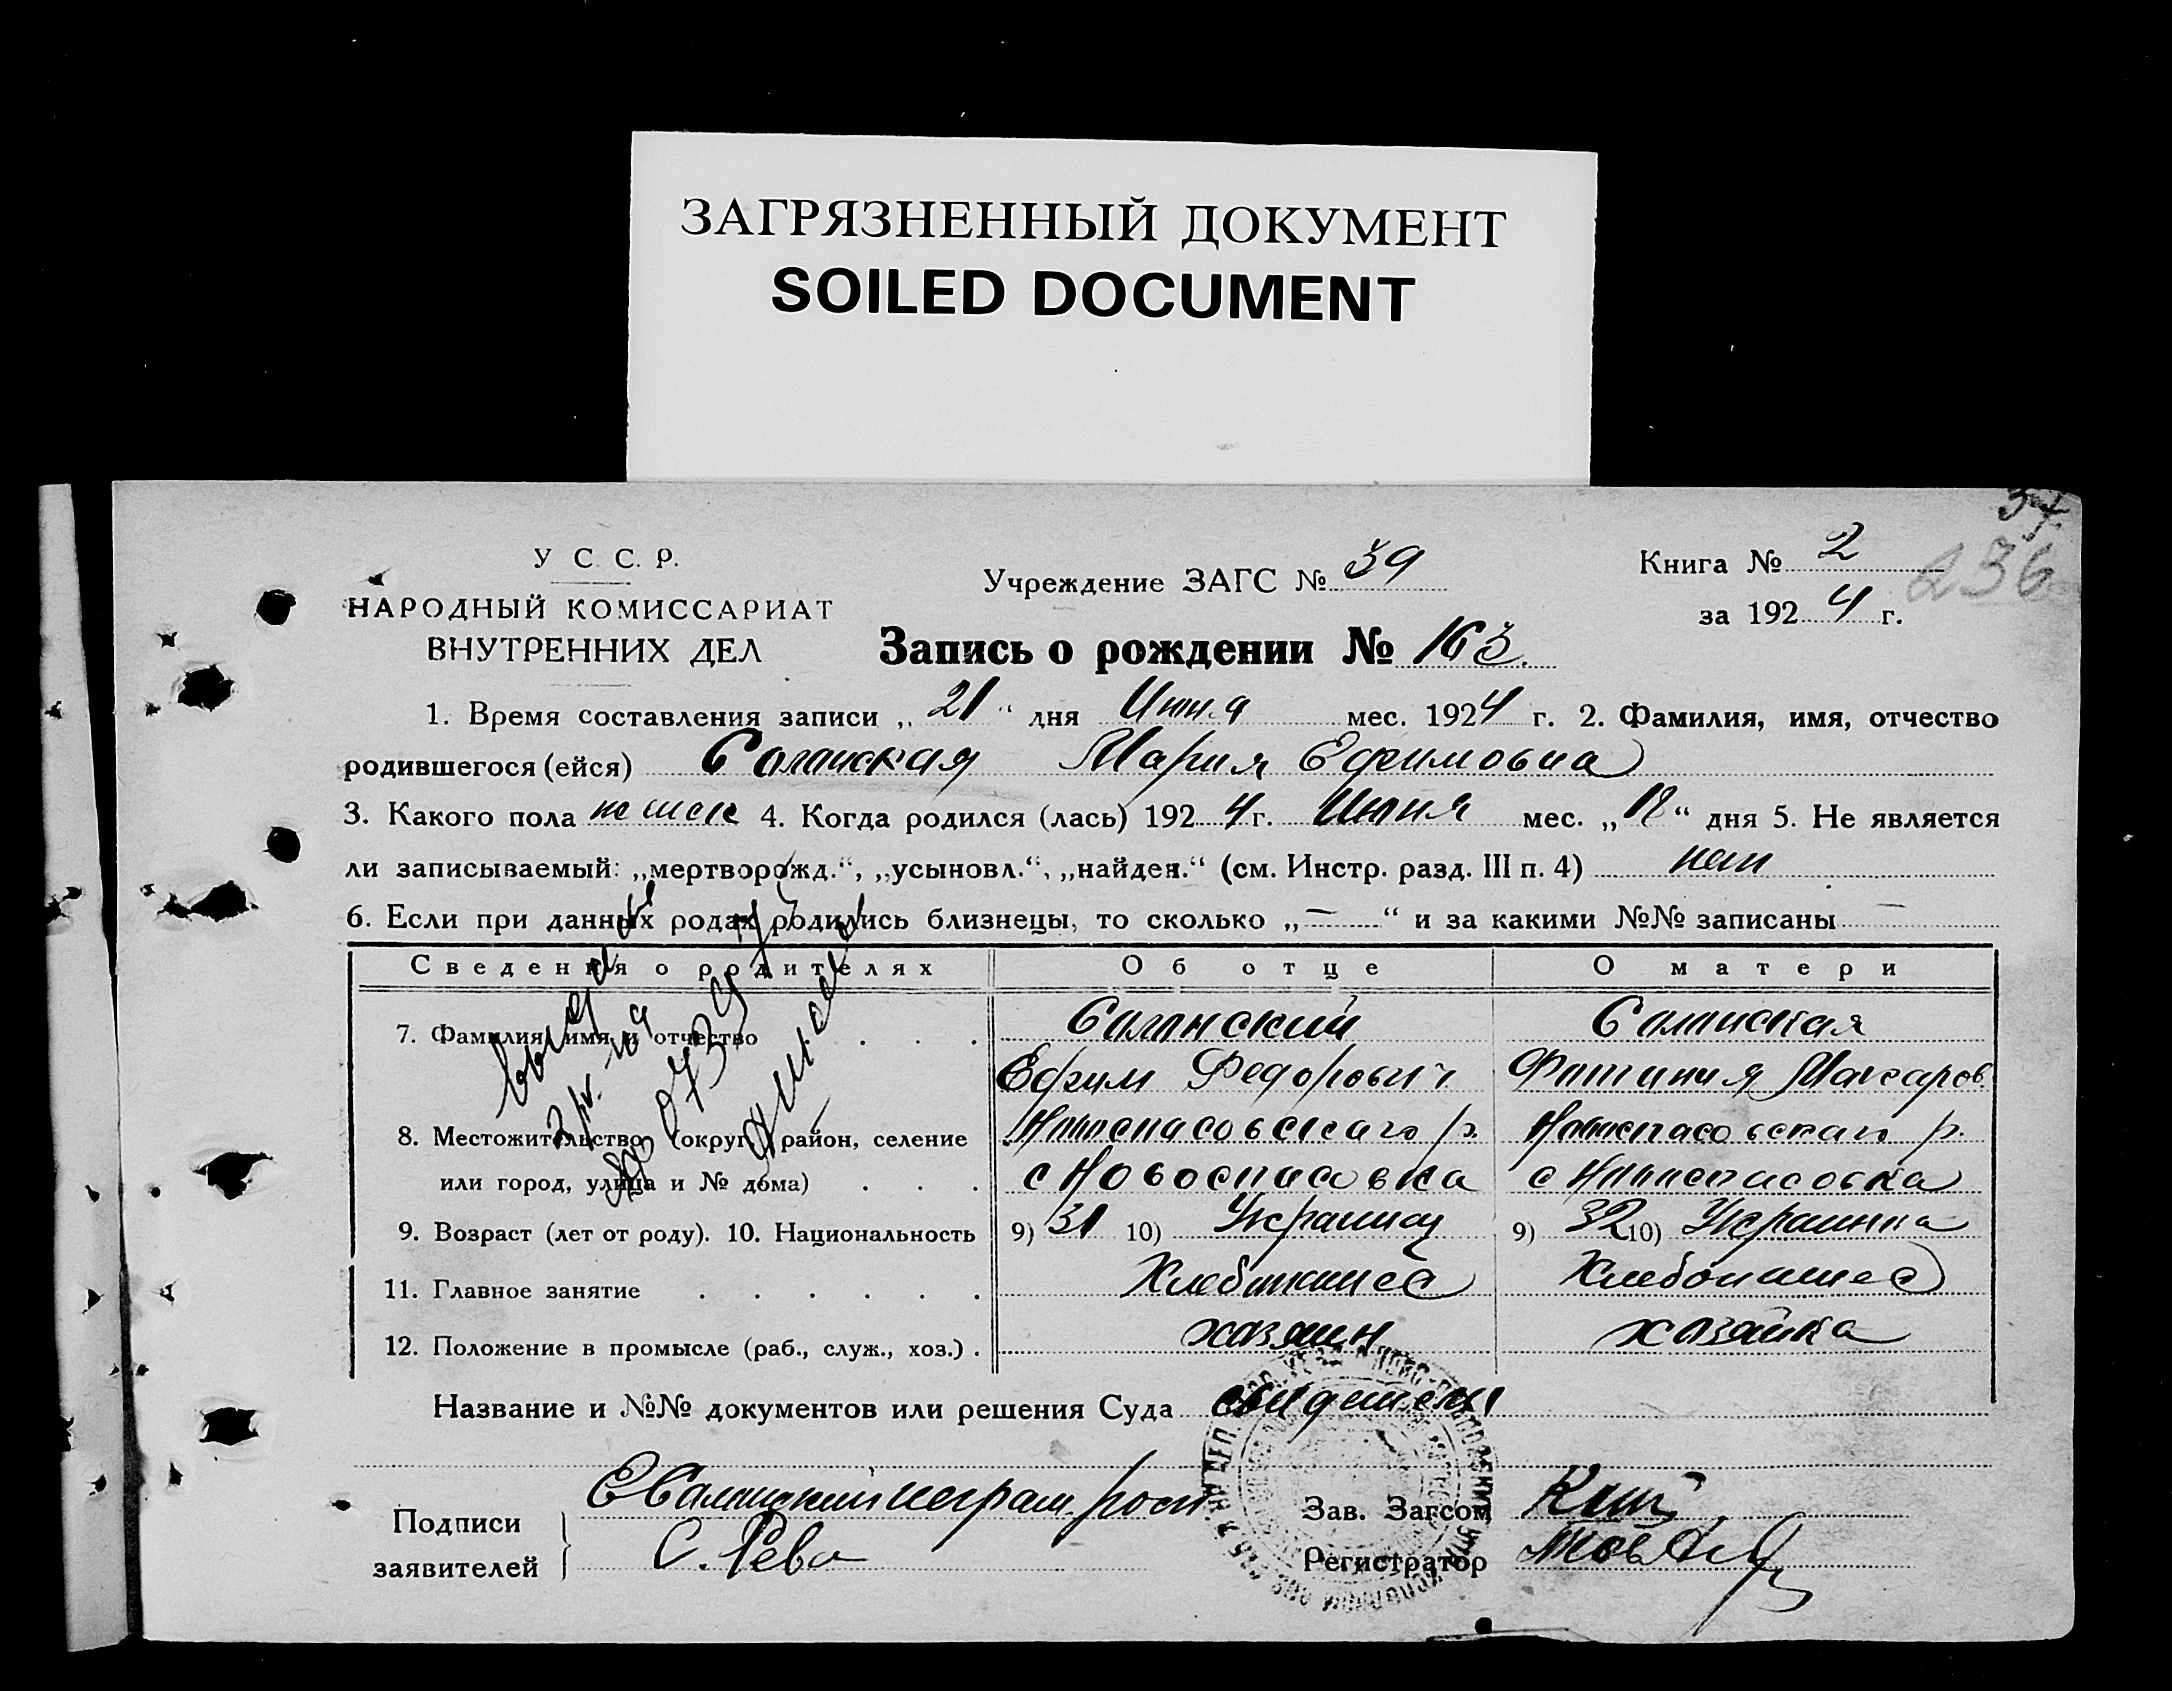 ЗАГРЯЗНЕННЫЙ ДОКУМЕНТ
SOILED DOCUMENT
37
236
У С. С. Р.
НАРОДНЫЙ КОМИССАРИАТ
ВНУТРЕННИХ ДЕЛ
Учреждение ЗАГС № 39
Книга № 2
за 1924 г.
Запись о рождении № 163.
1. Время составления записи „21“ дня Июня мес. 1924 г. 2. Фамилия, имя, отчество
родившегося (ейся) Мария Ефимовна
3. Какого пола женск 4. Когда родился (лась) 1924 г. Июня мес. „18“ дня 5. Не является
ли записываемый: „мертворожд.“, „усыновл.“, „найден.“ (см. Инстр. разд. III п. 4) нет
6. Если при данных родах родились близнецы, то сколько „—“ и за какими №№ записаны —
Сведения о родителях Об отце О матери
7. Фамилия, имя и отчество
Ефим Федорович
8. Местожительство (округ, район, селение
или город, улица и № дома) с Новоспасовка с Новоспасовка
9. Возраст (лет от роду). 10. Национальность 9) 31 10) Украинец 9) 32 10) Украинка
11. Главное занятие Хлебопашес Хлебопашес
12. Положение в промысле (раб., служ., хоз.) хозяин хозяйка
Название и №№ документов или решения Суда свидетели
Подписи
заявителей
С. Рева
Зав. Загсом
Регистратор